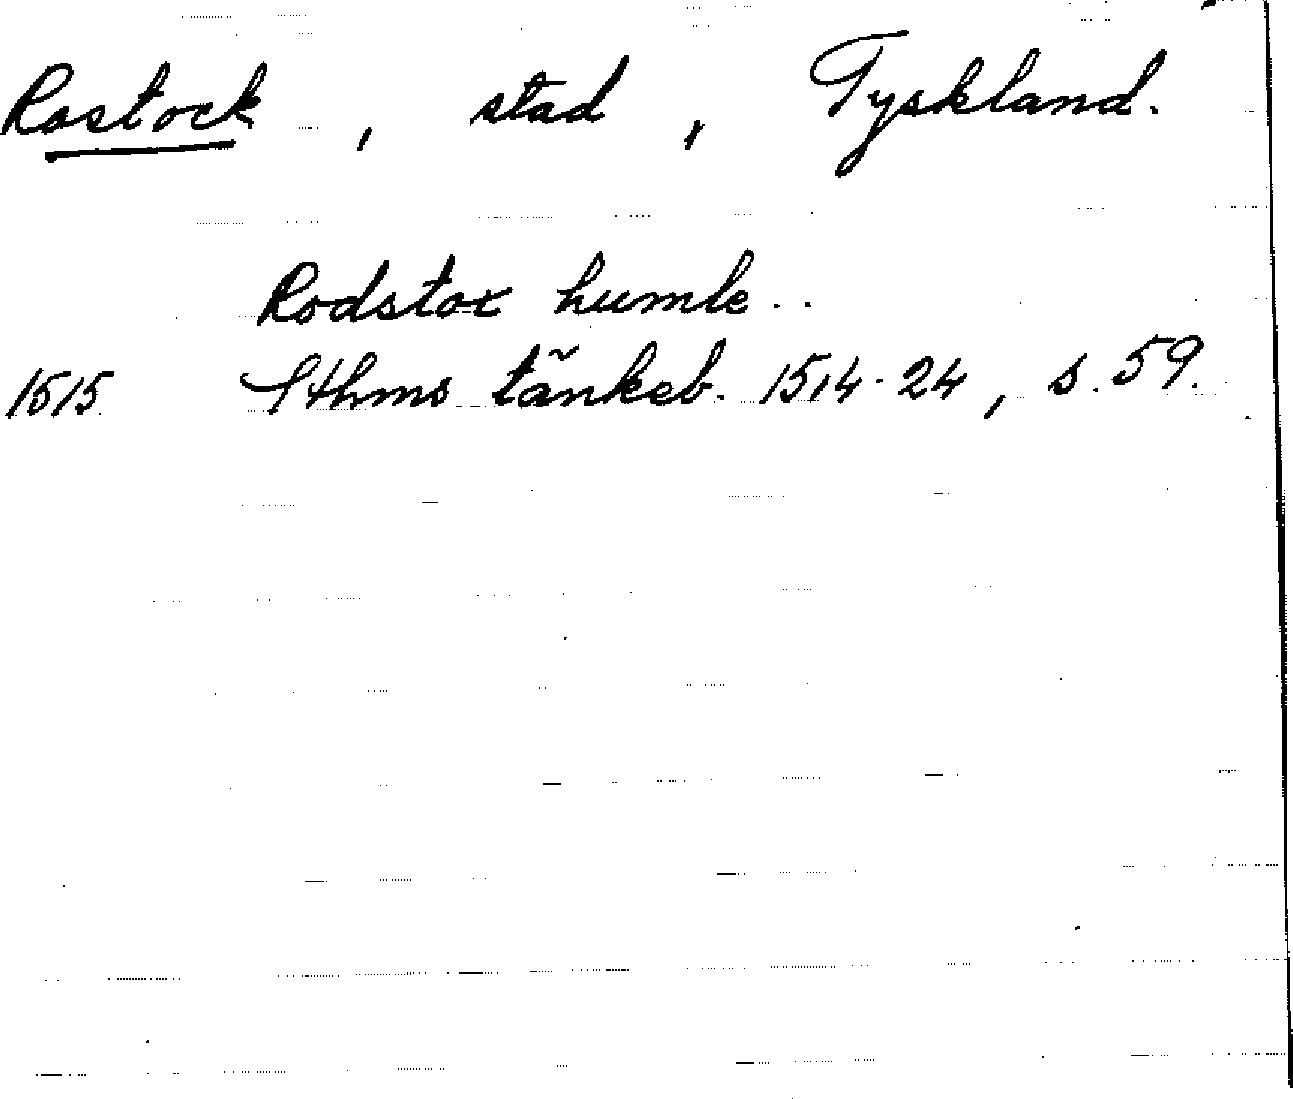 Rostock, stad, Tyskland.
Rodstox humle..
1515 Sthms tänkeb. 1514-24, s. 59.